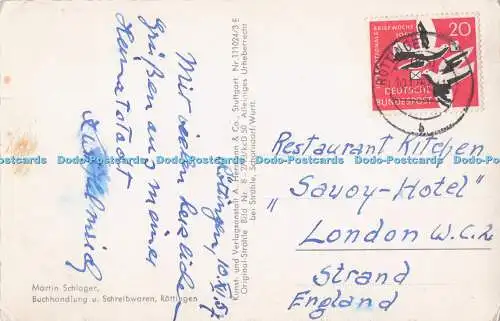 Röttingen, 10.XI.57
Mit vielen herzlichen
Grüßen aus meiner
Heimatstadt
Martin Schlager,
Buchhandlung u. Schreibwaren, Röttingen
Kunst- und Verlagsanstalt A. & Co., Stuttgart Nr. 111024/3 E
Original-Strähle Bild Nr. 8 Alleiniges Urheberrecht
bei Strähle, Schorndorf/Württ.
INTERNATIONALE BRIEFWOCHE 1957
20
DEUTSCHE
BUNDESPOST
RÖTTINGEN
b
Restaurant Kitchen
„Savoy-Hotel"
London W.C.2
Strand
England
Dodo-Postcards Dodo-Postcards Dodo-Postcards Dodo-Postcards Dodo-Postcards Dodo-Postcards